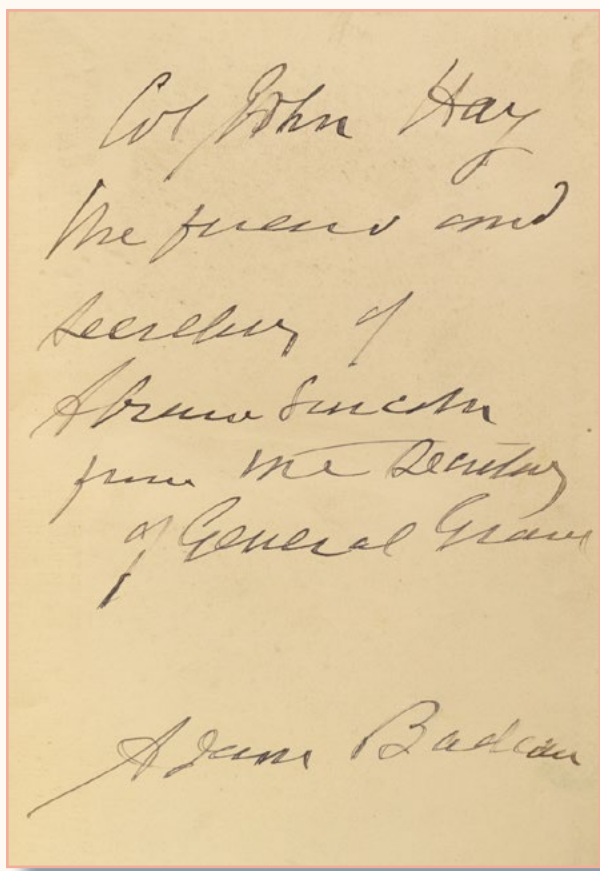 Col John Hay
the friend and
secretary of
Abram Lincoln
from the secretary
of General Grant
Adam Badeau